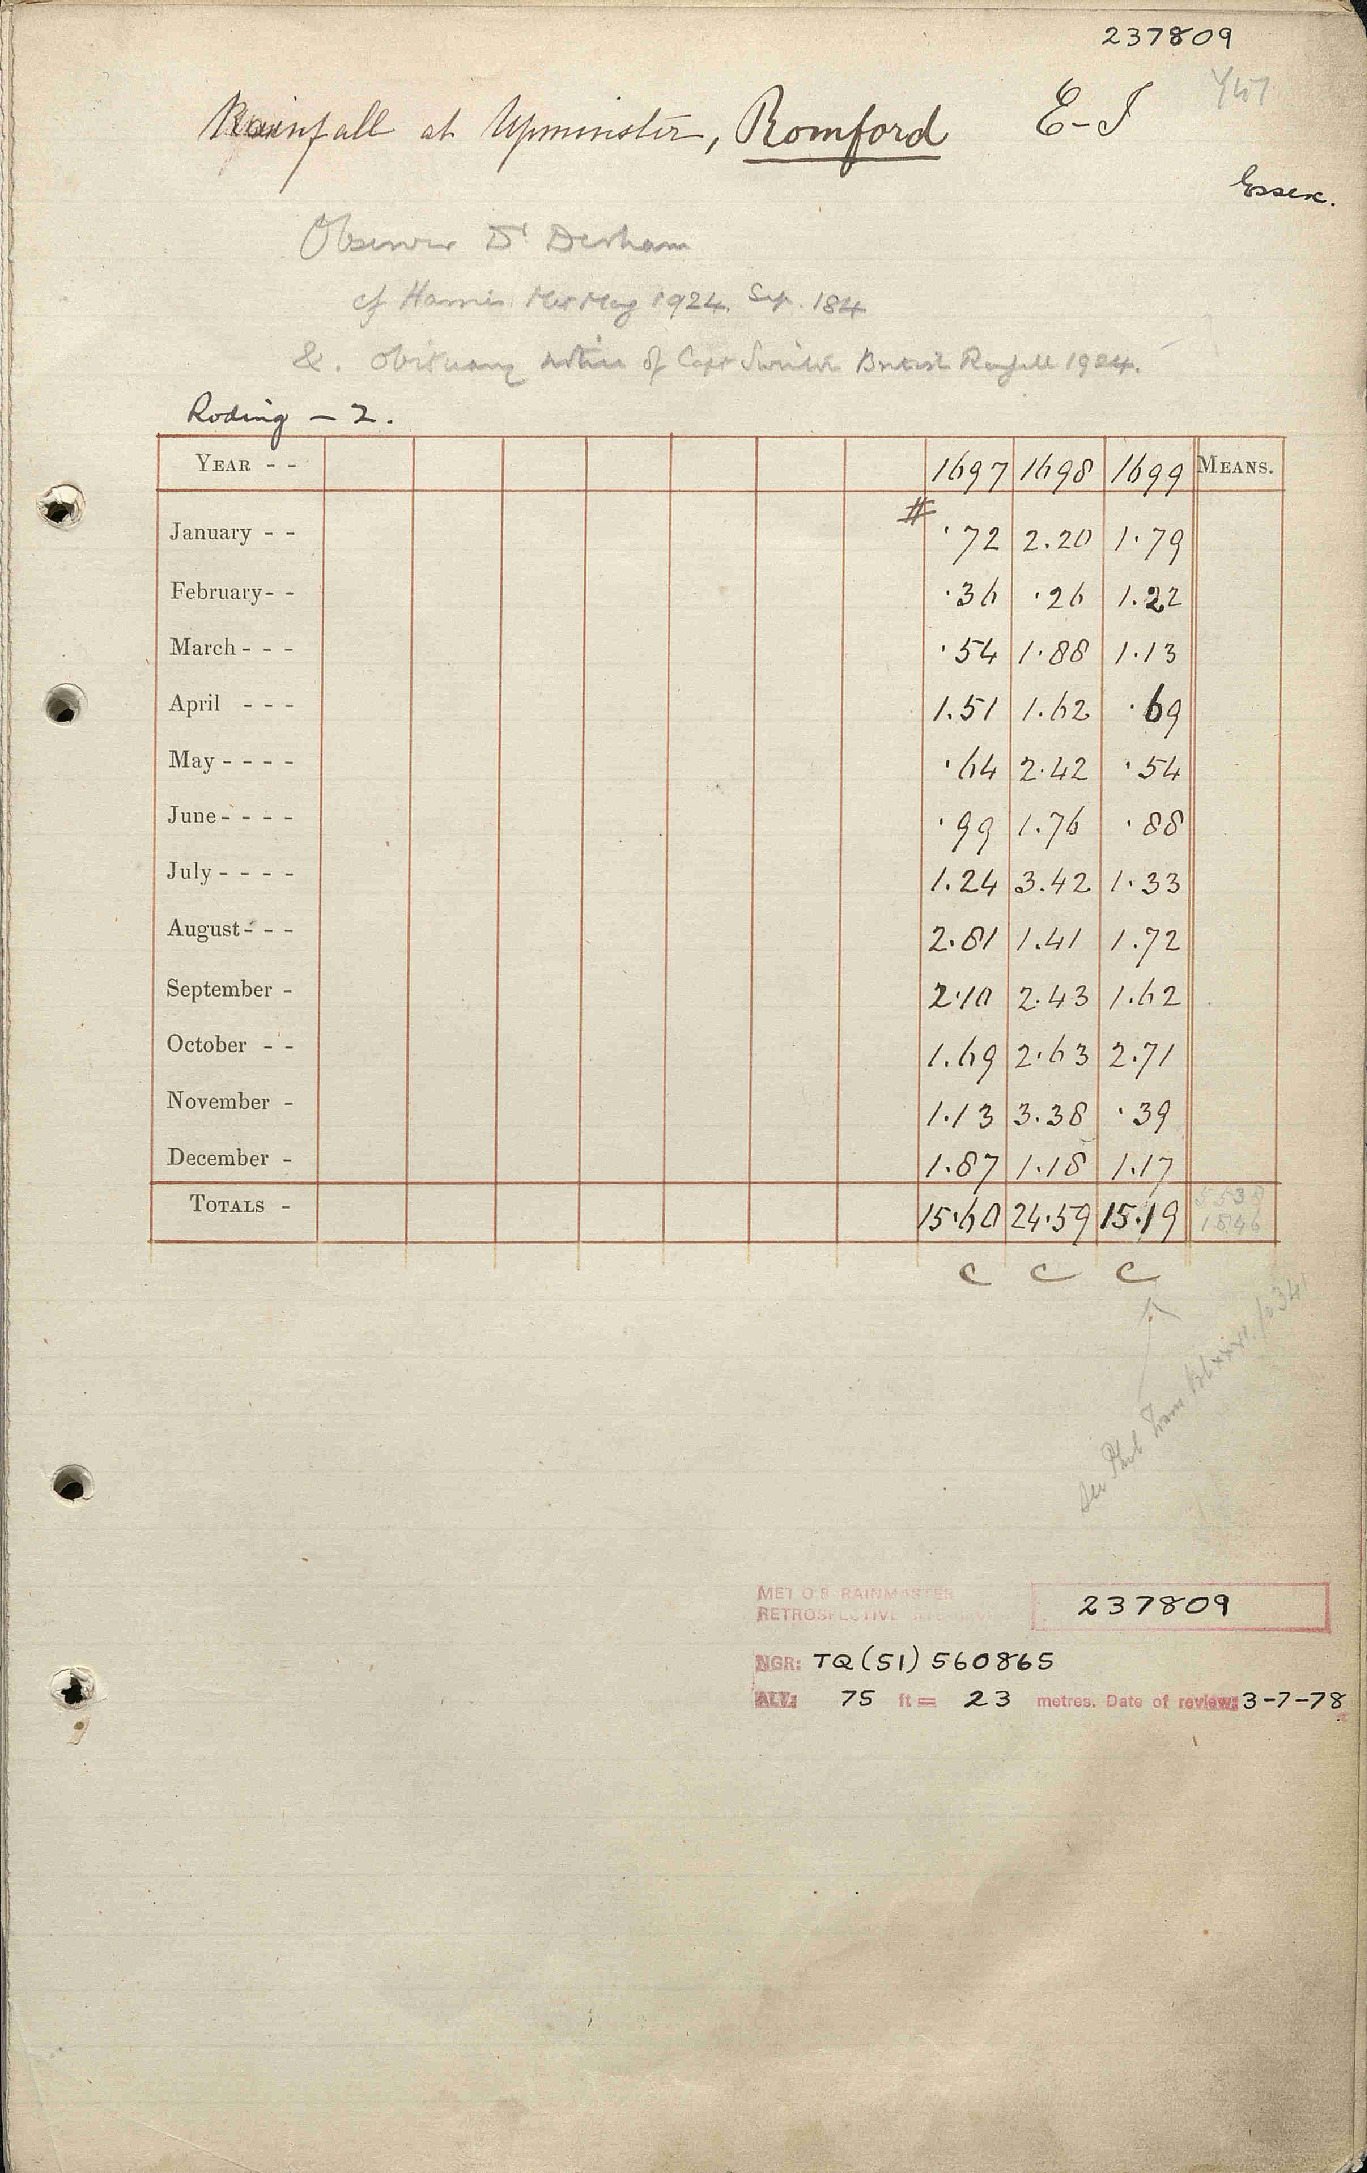 237809
Rainfall at Upminster, Romford E-I
Essex.
Observer Dr Derham
cf Harries Met Mag 1924. Sep. 184
&. obituary notice of Capt British Rainfall 1924.
Roding - 2.
YEAR - - 1697 1698 1699 MEANS.
#
January - - ·72 2.20 1·79
February - - ·36 ·26 1.22
March - - - ·54 1·88 1·13
April - - - 1.51 1.62 ·69
May - - - - ·64 2·42 ·54
June - - - - ·99 1.76 ·88
July - - - - 1.24 3.42 1·33
August - - - 2·81 1.41 1.72
September - 2·10 2·43 1.62
October - - 1.69 2·63 2·71
November - 1·13 3.38 ·39
December - 1.87 1.18 1.17
TOTALS - 15·60 24·59 15·19 5538
1846
C C C
See Phil Trans p 341
MET O.8 RAINMASTER
RETROSPECTIVE 237809
NGR: TQ (51) 560865
ALT: 75 ft = 23 metres. Date of review: 3-7-78